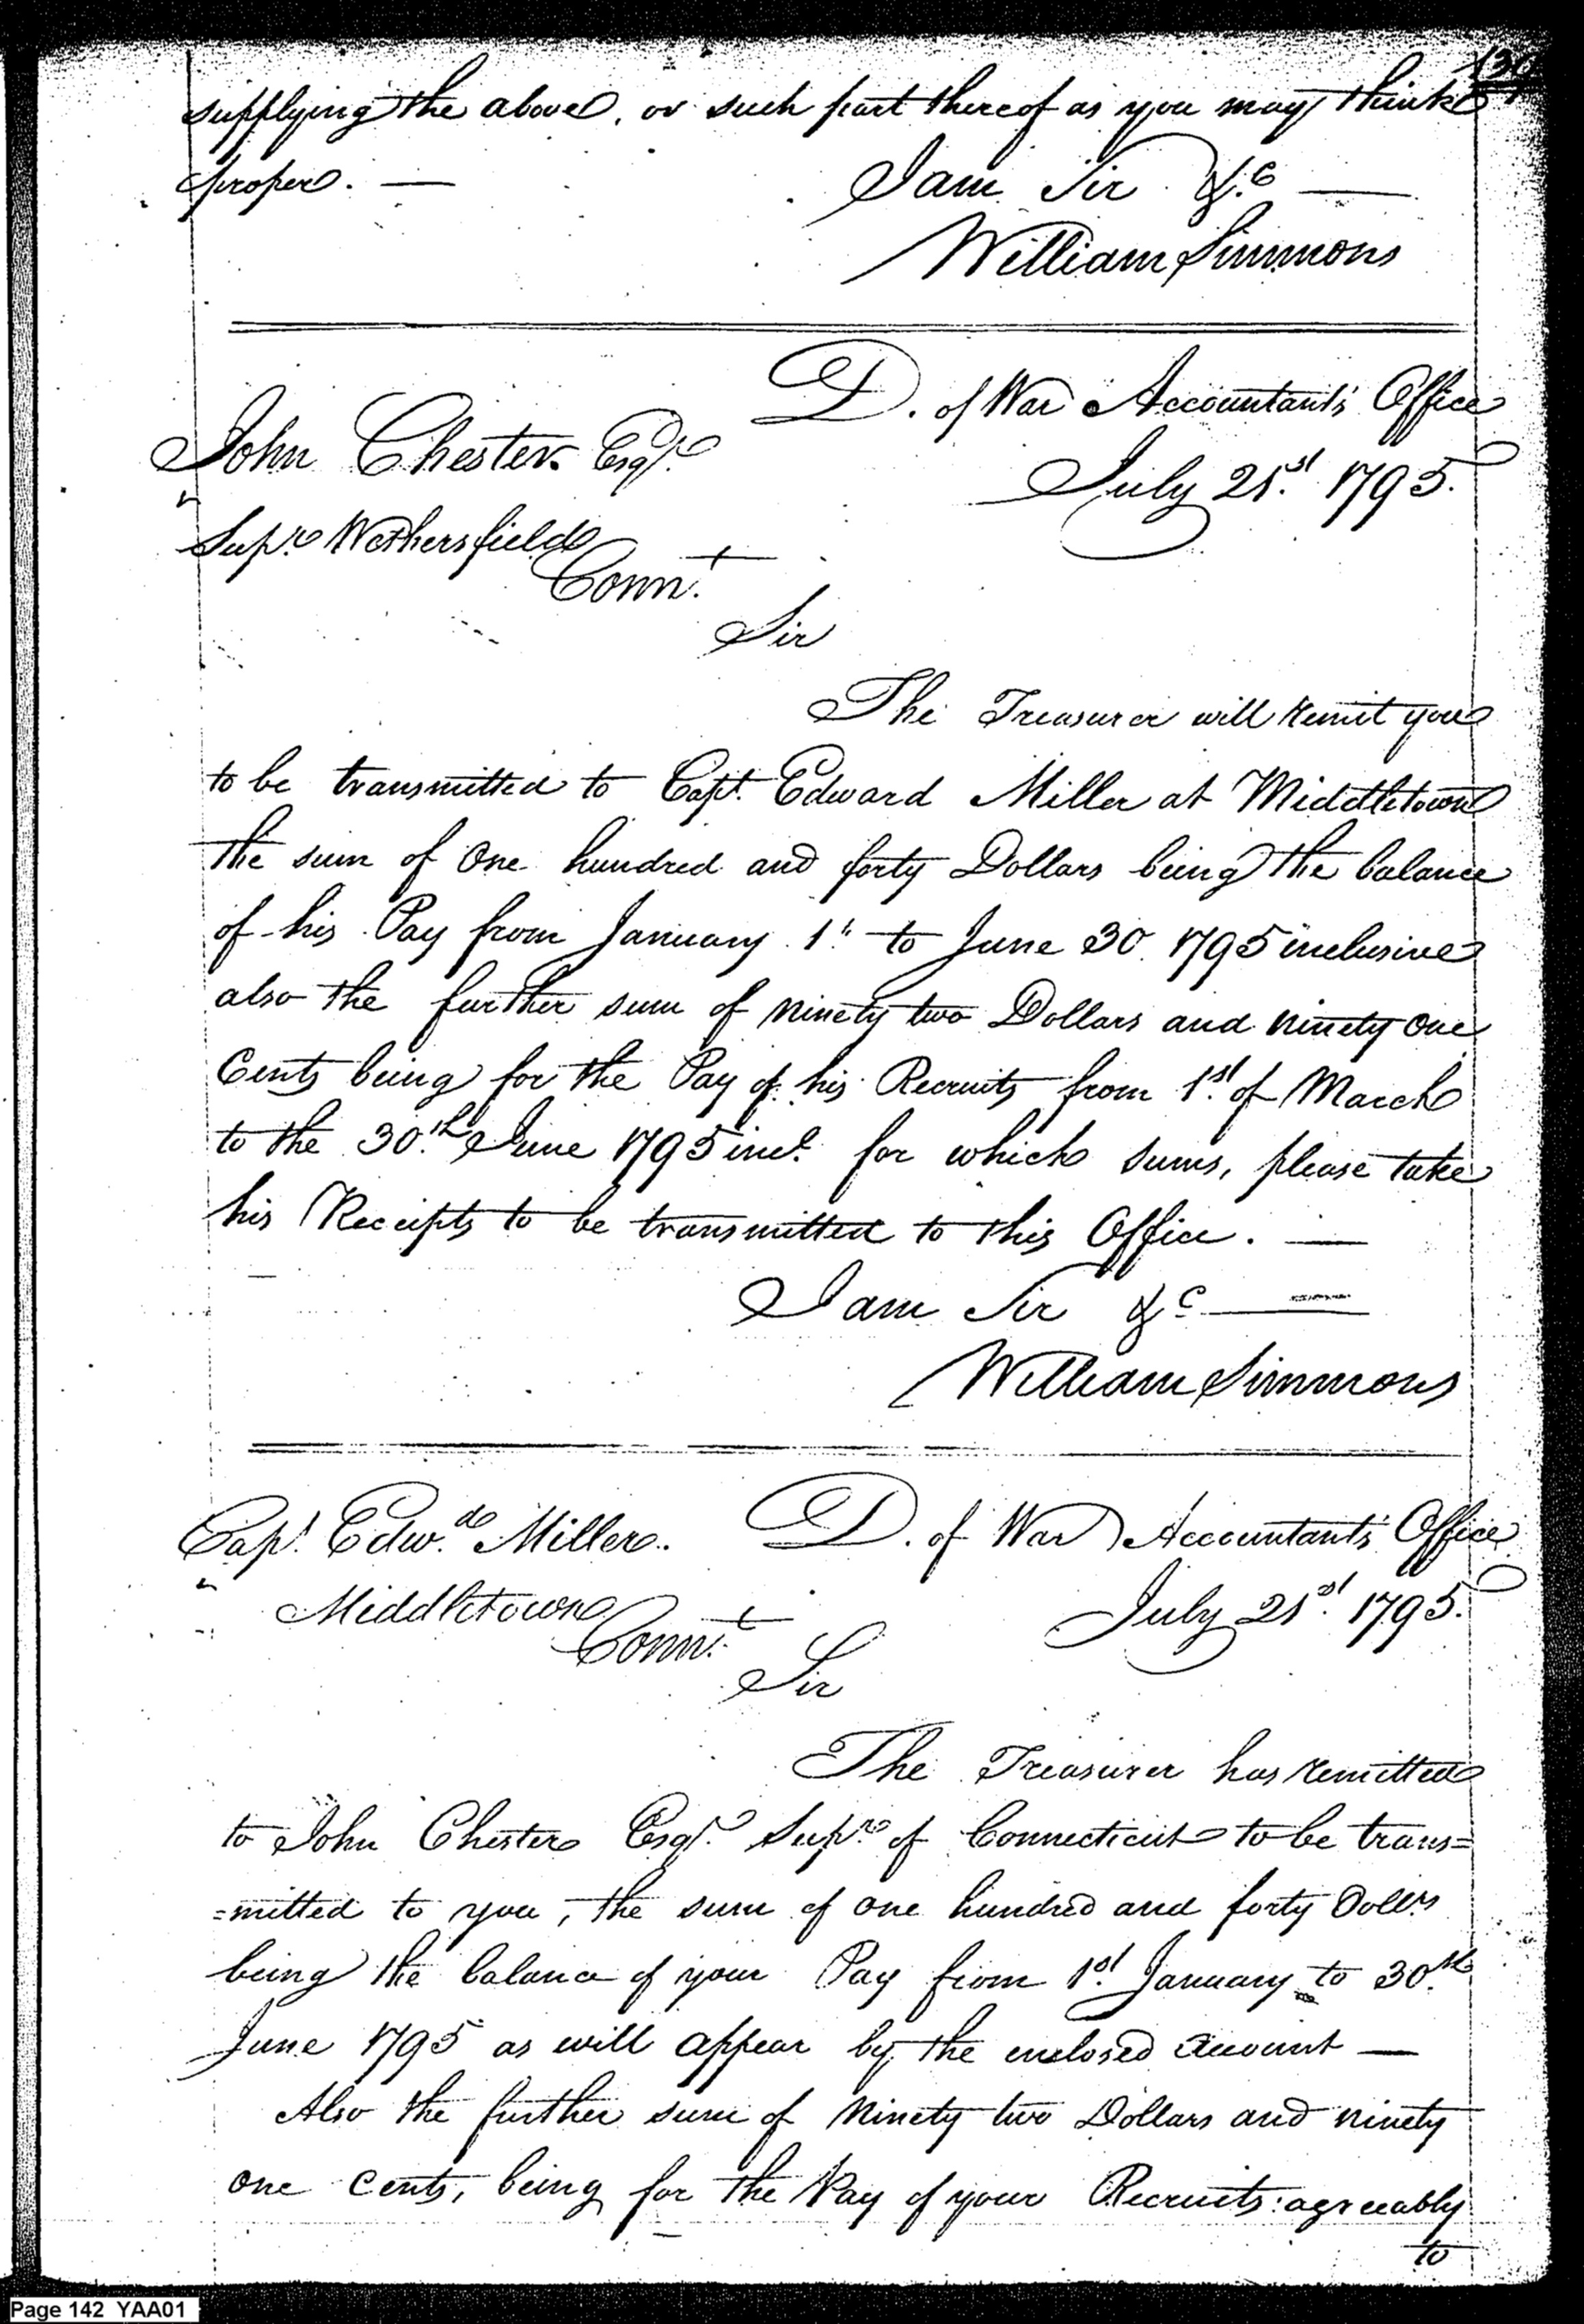 supplying the above, or such part thereof as you may think
proper. —
I am Sir &c —
William Simmons
D. of War Accountant's Office
July 21st. 1795.
John Chester Esqr.
Supr. Wethersfield
Connt.
Sir
The Treasurer will remit you
to be transmitted to Capt. Edward Miller at Middletown
the sum of One hundred and forty Dollars being the balance
of his Pay from January 1st to June 30. 1795 inclusive
also the further sum of ninety two Dollars and ninety one
Cents being for the Pay of his Recruits from 1st. of March
to the 30.th June 1795 incl. for which sums, please take
his Receipts to be transmitted to this Office. —
I am Sir &c —
William Simmons
Capt. Edwd. Miller.
Middletown
Connt.
D. of War Accountant's Office
July 21st. 1795.
Sir
The Treasurer has remitted
to John Chester Esqr. Supr. of Connecticut to be trans=
=mitted to you, the sum of one hundred and forty Dollrs
being the balance of your Pay from 1st. January to 30.th
June 1795 as will appear by the enclosed account —
Also the further sum of Ninety two Dollars and ninety
one cents, being for the Pay of your Recruits agreeably
to
Page 142 YAA01